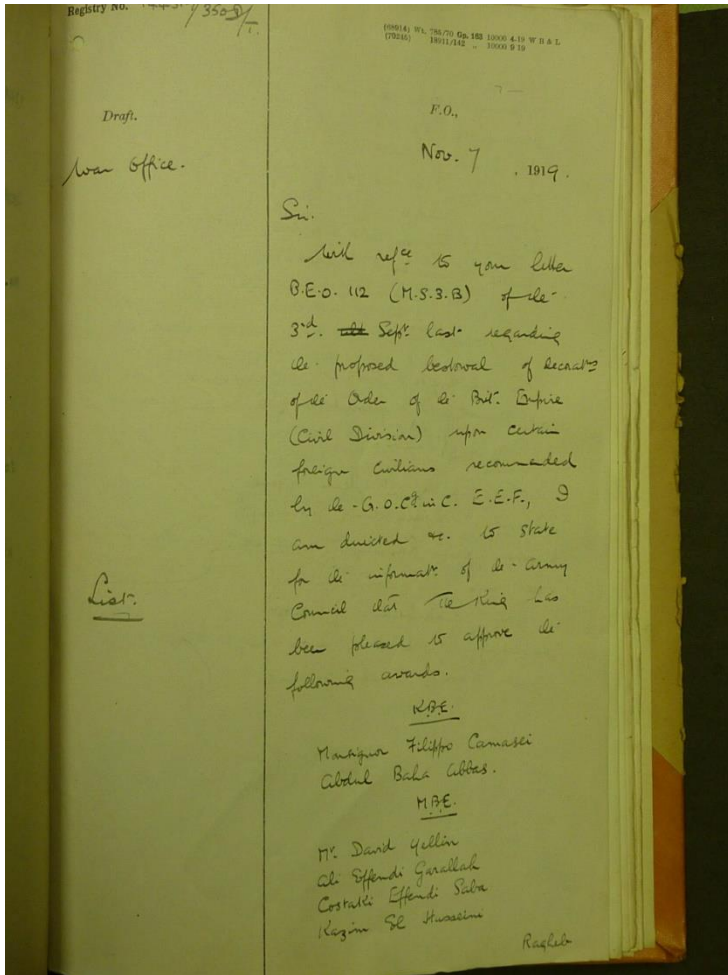 Registry No.
(68914) Wt. 786/70 Gp. 163 10000 4-19 W B & L
(70245) 18911/142 „ 10000 9 19
Draft.
F.O.,
War Office.
Nov. 7 , 1919.
Sir.
With refce to your letter
B.E.O. 112 (M.S.3.B) of the
3rd. ult Sept. last regarding
the proposed bestowal of decoratns
of the Order of the Brit. Empire
(Civil Division) upon certain
foreign civilians recommended
by the G.O.C in C. E.E.F., I
am directed &c. to state
for the informatn of the Army
List.
Council that The King has
been pleased to approve the
following awards.
K.B.E.
Monsignor Filippo Camasei
Abdul Baha Abbas.
M.B.E.
Mr. David Yellin
Ali Effendi Garallah
Costaki Effendi Saba
Kazim El Husseini
Ragheb